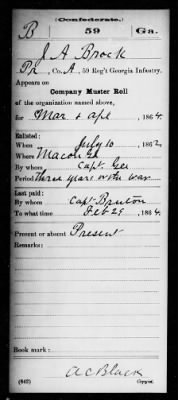 (Confederate.)
B 59 Ga.
J A Brock
Pr, Co. A, 59 Reg't Georgia Infantry.
Appears on
Company Muster Roll
of the organization named above,
for Mar & Apl, 1864.
Enlisted:
When July 10, 1862
Where Macon Ga
By whom Capt. Gee
Period three years or the war
Last paid:
By whom Capt. Bruton
To what time Feb 29, 1864.
Present or absent Present
Remarks:
Book mark:
A C Black
(642) Copyist.